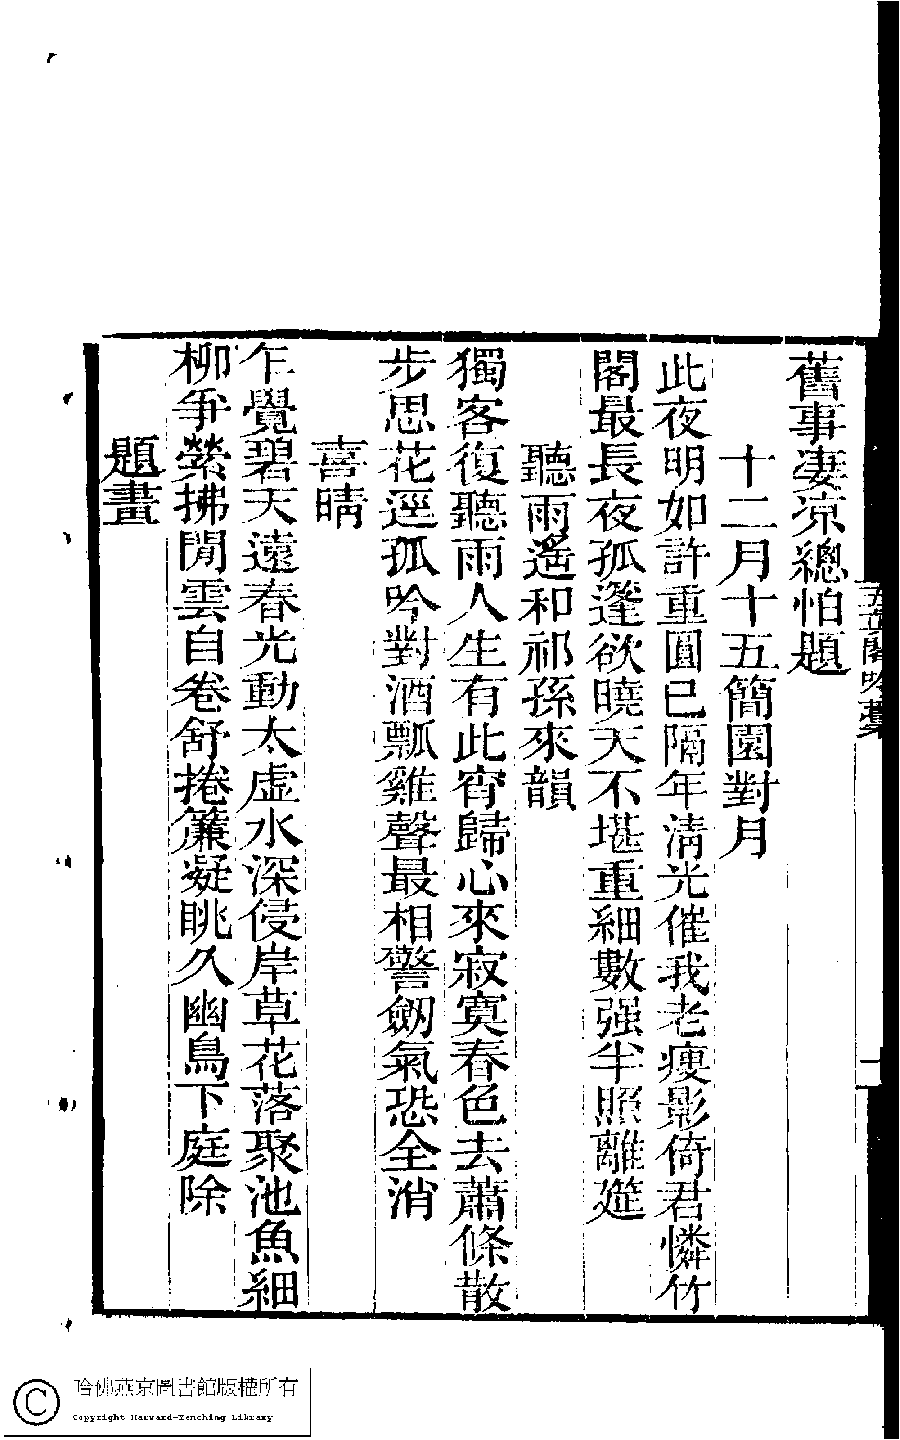 舊事凄凉總怕題
十二月十五簡園對月
此夜明如許重圓已隔年淸光催我老瘦影倚君憐竹
閣最長夜孤篷欲曉天不堪重細數强半照離筵
聽雨遙和祁孫來韻
獨客復聽雨人生有此宵歸心來寂寞春色去蕭條散
步思花逕孤吟對酒瓢雞聲最相警劒氣恐全消
喜晴
乍覺碧天遠春光動太虛水深侵岸草花落聚池魚細
柳爭縈拂閒雲自卷舒捲簾凝眺久幽鳥下庭除
題畫
哈佛燕京圖書館版權所有
Copyright Harvard-Yenching Library